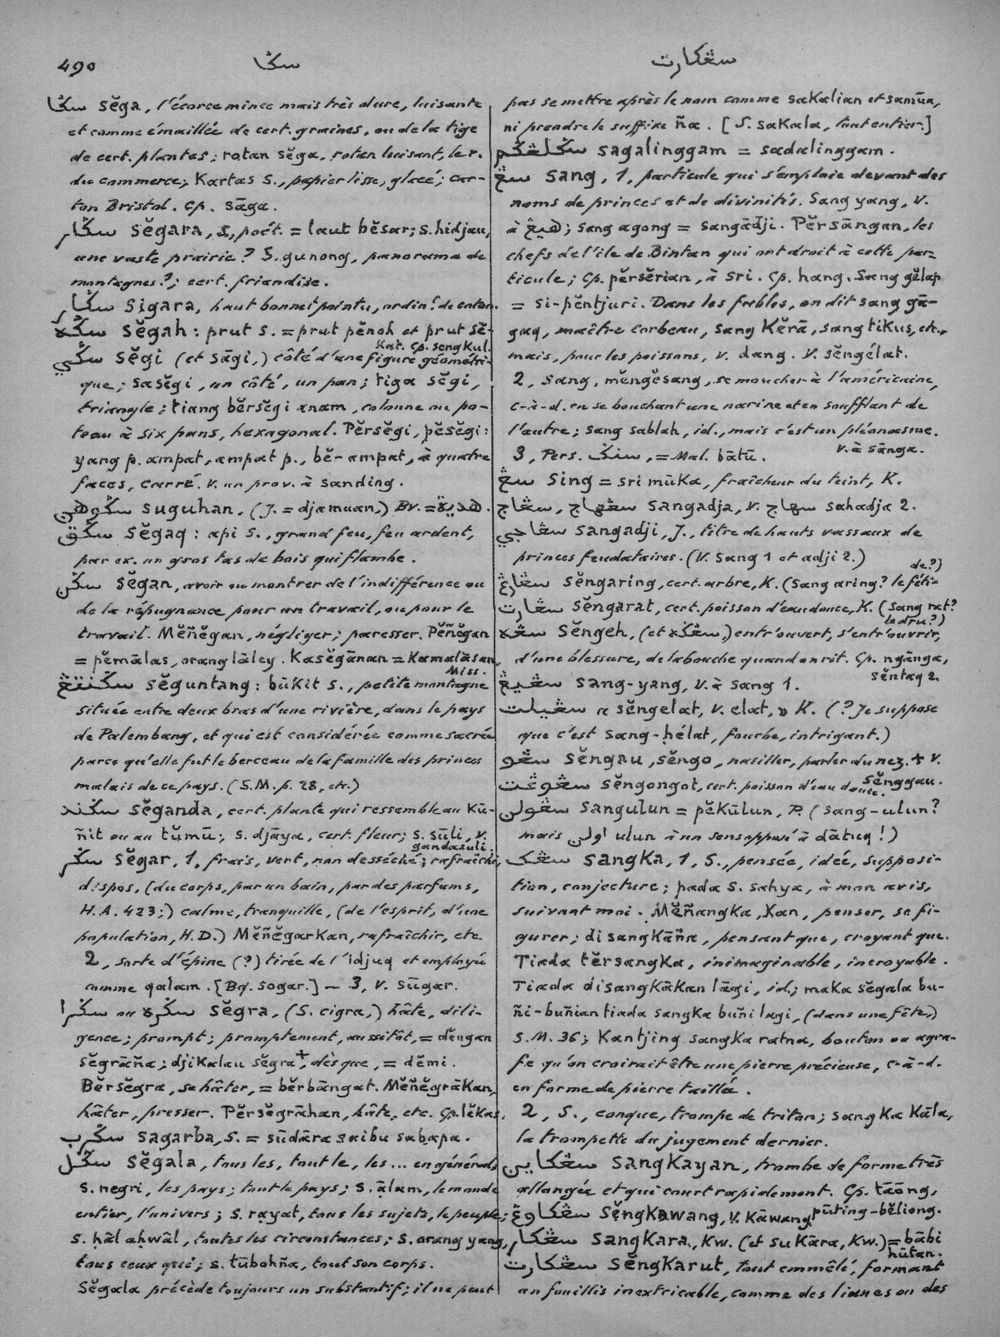 490
سݢا
سڠكارت
سݢا sĕga, l'écorce mince mais très dure, luisante
et comme émaillée de cert. graines, ou de la tige
de cert. plantes; rotan sĕga, rotan luisant, le r.
du commerce; Kartas s., papier lisse, glacé; car-
ton Bristol. Cp. sāga.
سݢار sĕgara, S, poét. = laut bĕsar; s. hidjau,
une vaste prairie? S. gunong, panorama de
montagnes?; cert. friandise.
سݢار sigara, haut bonnet pointu, ordin.t de coton.
سݢه sĕgah: prut s. = prut pĕnoh et prut sĕ-
Kat. Cp. sengkul.
سݢي sĕgi (et sāgi,) côté d'une figure géométri-
que; sasĕgi, un côté, un pan; tiga sĕgi,
triangle; tiang bĕrsĕgi anam, colonne ou po-
teau à six pans, hexagonal. Pĕrsĕgi, pĕsĕgi:
yang p. ampat, ampat p., bĕ-ampat, à quatre
faces, carré. V. un prov. à sanding.
سݢوهن suguhan, (J. = djamuan,) Bv. = هدية.
سݢق sĕgaq: api s., grand feu, feu ardent,
par ex. un gros tas de bois qui flambe.
سݢن sĕgan, avoir ou montrer de l'indifférence ou
de la répugnance pour un travail, ou pour le
travail. Mĕñĕgan, négliger; paresser. Pĕñĕgan
= pĕmālas, orang lāley. Kasĕgānan = Kamalāsan,
Miss.
سݢنتڠ sĕguntang: būkit s., petite montagne
située entre deux bras d'une rivière, dans le pays
de Palembang, et qui est considérée comme sacrée
parce qu'elle fut le berceau de la famille des princes
malais de ce pays. (S.M. p. 28, etc.)
سݢند sĕganda, cert. plante qui ressemble au Kū-
ñit ou au tŭmū; s. djāya, cert. fleur; s. sūli, v.
gandasuli.
سݢر sĕgar, 1, frais, vert, non desséché; rafraîchi,
dispos, (du corps, par un bain, par des parfums,
H.A. 423;) calme, tranquille, (de l'esprit, d'une
population, H.D.) Mĕñĕgarkan, rafraîchir, etc.
2, sorte d'épine (?) tirée de l'idjuq et employée
comme qalam. [Bq. sogar.] — 3, V. sūgar.
سݢرا ou سݢره sĕgra, (S. cigra,) hâte, dili-
gence; prompt; promptement, aussitôt, = dĕngan
sĕgrāña; djikalau sĕgra+, dès que, = dĕmi.
Bĕrsĕgra, se hâter, = bĕrbāngat. Mĕñĕgrākan,
hâter, presser. Pĕrsĕgrāhan, hâte, etc. Cp. lĕkas.
سݢرب sagarba, S. = sūdāra saibu sabapa.
سݢل sĕgala, tous les, tout le, les... en général;
s. negri, les pays; tout le pays; s. ālam, le monde
entier, l'univers; s. rayat, tous les sujets, le peuple;
s. hāl ahwāl, toutes les circonstances; s. orang yang,
tous ceux qui; s. tūbohña, tout son corps.
Sĕgala précède toujours un substantif; il ne peut
pas se mettre après le nom comme sakalian et samūa,
ni prendre le suffixe ña. [S. sakala, tout entier.]
سݢلڠݢم sagalinggam = sadalinggam.
سڠ sang, 1, particule qui s'emploie devant des
noms de princes et de divinités. Sang yang, v.
à هيڠ; sang agong = sangādji. Pĕrsāngan, les
chefs de l'île de Bintan qui ont droit à cette par-
ticule; Cp. pĕrsĕrian, à sri. Cp. hang. Sang gĕlap
= si-pĕntjuri. Dans les fables, on dit sang gā-
gaq, maître corbeau, sang Kĕrā, sang tikus, etc.,
mais, pour les poissons, v. dang. V. sĕngélat.
2, Sang, mĕngĕsang, se moucher à l'américaine,
c-à-d. en se bouchant une narine et en soufflant de
l'autre; sang sablah, id., mais c'est un pléonasme.
V. à sānga.
3, Pers. سنݢ, = Mal. bātū.
سڠ sing = sri mūka, fraîcheur du teint, K.
سڠاج, سڠهاج sangadja, V. سهاج sahadja 2.
سڠاجي sangadji, J., titre de hauts vassaux de
princes feudataires. (V. sang 1 et adji 2.)
سڠارڠ sĕngaring, cert. arbre, K. (Sang aring? le féti-
de?)
سڠارت sĕngarat, cert. poisson d'eau douce, K. (sang rat?
ladru?)
سڠه sĕngeh, (et سڠكه,) entr'ouvert, s'entr'ouvrir,
d'une blessure, de la bouche quand on rit. Cp. ngānga,
sĕntaq 2.
سڠيڠ sang-yang, v. à sang 1.
سڠيلت « sĕngelat, v. elat, » K. (? Je suppose
que c'est sang-hélat, fourbe, intrigant.)
سڠو sĕngau, sĕngo, nasiller, parler du nez. + V.
Sĕnggau.
سڠوڠت sĕngongot, cert. poisson d'eau douce.
سڠولن sangulun = pĕkūlun, P. (sang-ulun?
mais اولن ulun a un sens opposé à dātuq!)
سڠك sangka, 1, S., pensée, idée, supposi-
tion, conjecture; pada s. sahya, à mon avis,
suivant moi. Mĕñangka, Kan, penser, se fi-
gurer; di sangkāña, pensant que, croyant que.
Tiada tĕrsangka, inimaginable, incroyable.
Tiada disangkākan lāgi, id.; maka sĕgala bu-
ñi-buñian tiada sangka buñi lagi, (dans une fête,)
S.M. 36; Kantjing sangka ratna, bouton ou agra-
fe qu'on croirait être une pierre précieuse, c-à-d.
en forme de pierre taillée.
2, S., conque, trompe de triton; sangka Kāla,
la trompette du jugement dernier.
سڠكاين sangkayan, trombe de forme très
allongée et qui court rapidement. Cp. tāong,
pūting-bĕliong.
سڠكاوڠ sĕngkawang, V. Kāwang.
سڠكار sangkara, Kw. (et su Kāra, Kw.) = bābi
hūtan.
سڠكارت sĕngkarut, tout emmêlé, formant
un fouillis inextricable, comme des lianes ou des